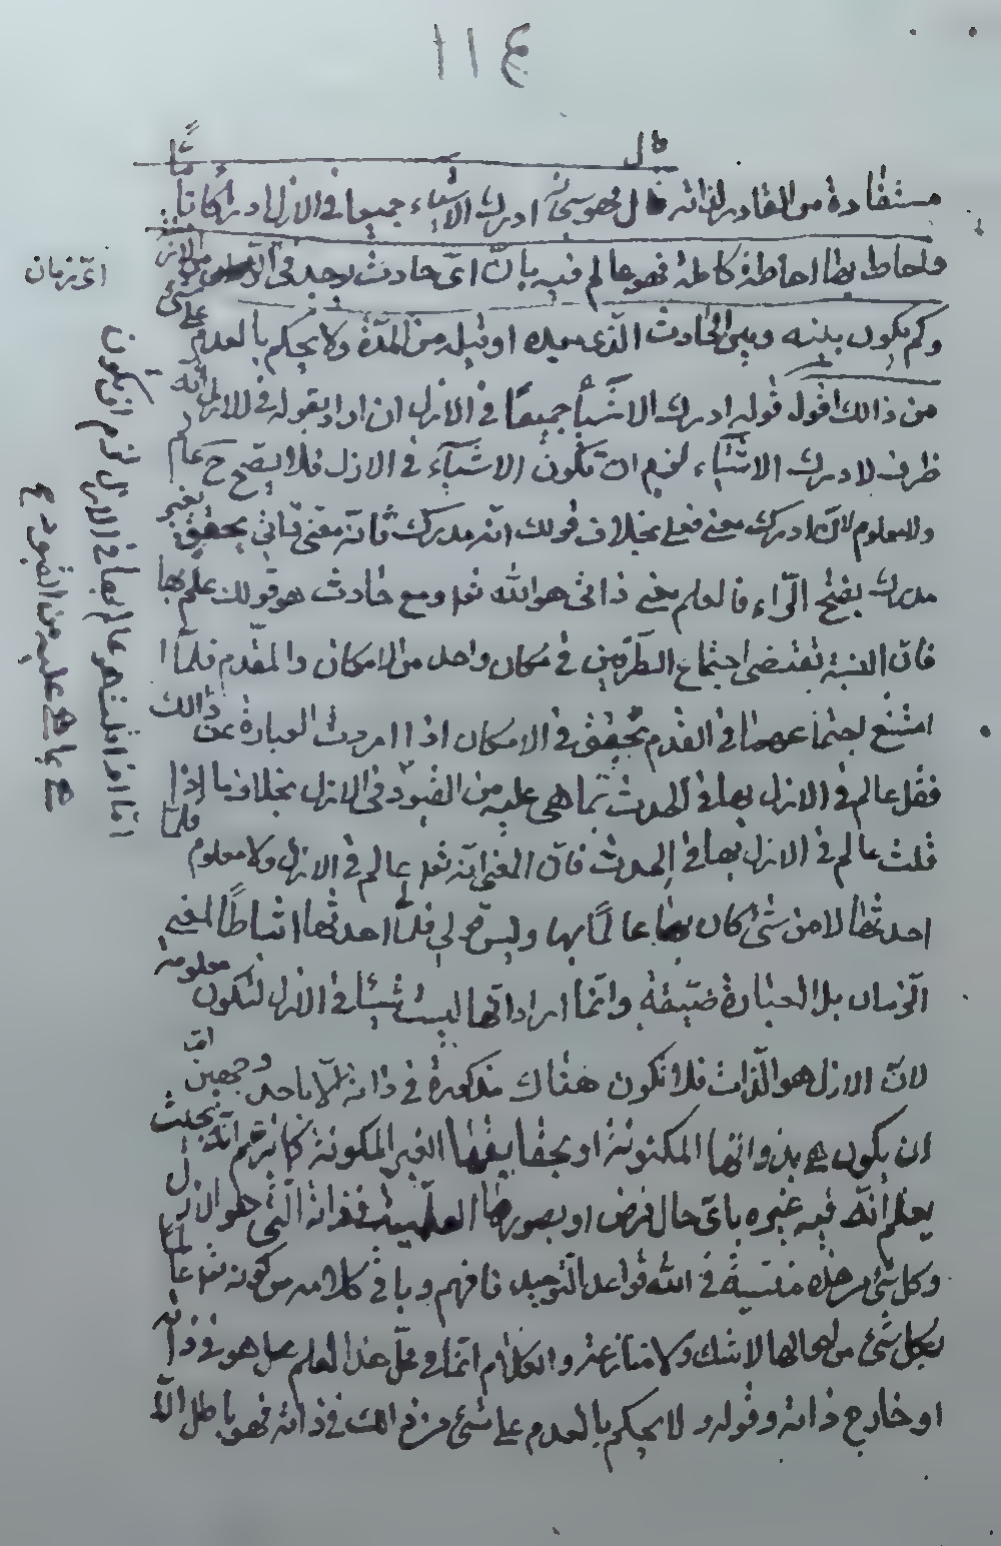 ١١٤
قال
مستفادة من القادر لذاته قال فهو سبحانه ادرك الاشياء جميعا في الازل ادراكا تامًّا
واحاط بها احاطة كاملة فهو عالم فيه بان ايّ حادث يوجد في ايّ زمان من الازمنة
وكم يكون بينه وبين الحادث الّذي بعده او قبله من المدّة ولا يحكم بالعدم على شئ
من ذالك اقول قوله ادرك الاشيآء جميعًا في الازل ان اراد بقوله في الازل انّه
ظرف لادراك الاشيآء لزم ان تكون الاشيآء في الازل فلا يصّح ح عالم
ولا معلوم لان ادرك معنى فعلي بخلاف قولك انّه مدرك فانّه معنى ذاتي يحقق بغير
مدرك بفتح الرّاء فالعلم معنى ذاتي هو الله تعا ومع حادث هو قولك علم بها
فان النسبة تقتضي اجتماع الطّرفين في مكان واحد من الامكان والقدم فلمّا
امتنع اجتماعهما في القدم تحقق في الامكان اذا اردت العبارة عن ذالك
فقل عالم في الازل بها في الحدث بما هي عليه من القيود في الازل بخلاف ما اذا
قلت عالم في الازل بها في الحدث فان المعنى انّه تعا عالم في الازل ولا معلوم فلمّا
احدثها لا من شئ كان عالمًا بها وليس قولي فلمّا احدثها اثباتًا لمعنى
الزّمان بل العبارة ضيّقة وانّما المراد انّها ليست شيئا في الازل لتكون معلومة
لان الازل هو الذّات فلا تكون هناك مذكورة في ذاته الّا باحد وجهين امّا
ان يكون هي بذواتها المكنونة او بحقايقها الغير المكونة كما زعم انّه بحيث
يعلم انّه فيه غيره باي حال فرض او بصورها العلميّة فذاته الّتي هو الازل
وكل شئ من هذه منتسبة في الله قواعد التّوحيد فافهم وباقي كلامه من كونه تعا عالما
بكل شئ من احوالها لا شك ولا منازعة والكلام انّما في محلّ هذا العلم هل هو في ذاته
او خارج ذاته وقوله ولا يحكم بالعدم على شئ من ذالك في ذاته فهو باطل
ايّ زمان
اذا اراد انّ الله هو عالم بها في الازل لزم ان تكون
هي بما هي عليه من القيود ع